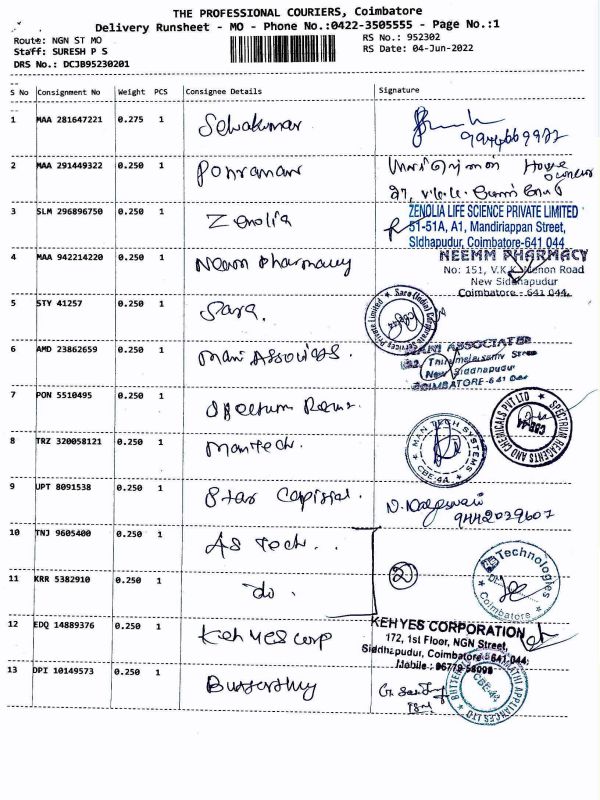 THE PROFESSIONAL COURIERS, Coimbatore
Delivery Runsheet - MO - Phone No.:0422-3505555 - Page No.:1
Route: NGN ST MO RS No.: 952302
Staff: SURESH P S RS Date: 04-Jun-2022
DRS No.: DCJB95230201
S No Consignment No Weight PCS Consignee Details Signature
1 MAA 281647221 0.275 1 Selvakumar
2 MAA 291449322 0.250 1 House owner
3 SLM 296896750 0.250 1 Zenolia ZENOLIA LIFE SCIENCE PRIVATE LIMITED
51-51A, A1, Mandiriappan Street,
Sidhapudur, Coimbatore-641 044
4 MAA 942214220 0.250 1 Neemm Pharmacy NEEMM PHARMACY
No: 151, V.K.K. Menon Road
New Siddhapudur
Coimbatore - 641 044.
5 STY 41257 0.250 1 Sara. Sara (India) Corporate Services Private Limited
6 AMD 23862659 0.250 1 Mani Associates. MANI ASSOCIATES
Street
New Siddhapudur
COIMBATORE-641 044
7 PON 5510495 0.250 1 SPECTRUM REAGENTS AND CHEMICALS PVT LTD
CBE-44
8 TRZ 320058121 0.250 1 Mantech. MAN TECH SYSTEMS
CBE-44
9 UPT 8091538 0.250 1 Star Capital. 9442039607
10 TNJ 9605400 0.250 1 AS Tech. Technologies
Coimbatore
11 KRR 5382910 0.250 1 do. 2
12 EDQ 14889376 0.250 1 Kehyes corp KEHYES CORPORATION
172, 1st Floor, NGN Street,
Siddhapudur, Coimbatore-641 044.
Mobile : 96779 58098
13 DPI 10149573 0.250 1 Butterfly
CBE-44